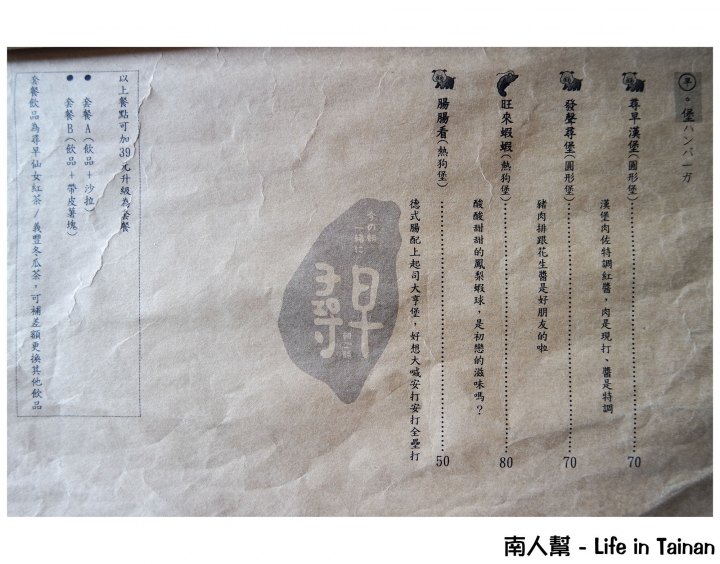 早・堡 ハンバーガ
尋早漢堡(圓形堡) 70
漢堡肉佐特調紅醬,肉是現打、醬是特調
發聲尋堡(圓形堡) 70
豬肉排跟花生醬是好朋友的啦
旺來蝦蝦(熱狗堡) 80
酸酸甜甜的鳳梨蝦球,是初戀的滋味嗎?
腸腸看(熱狗堡) 50
德式腸配上起司大亨堡,好想大喊安打安打全壘打
尋早
以上餐點可加39元升級為套餐
● 套餐A(飲品+沙拉)
● 套餐B(飲品+帶皮薯塊)
套餐飲品為尋早仙女紅茶/義豐冬瓜茶,可補差額更換其他飲品
南人幫 - Life in Tainan